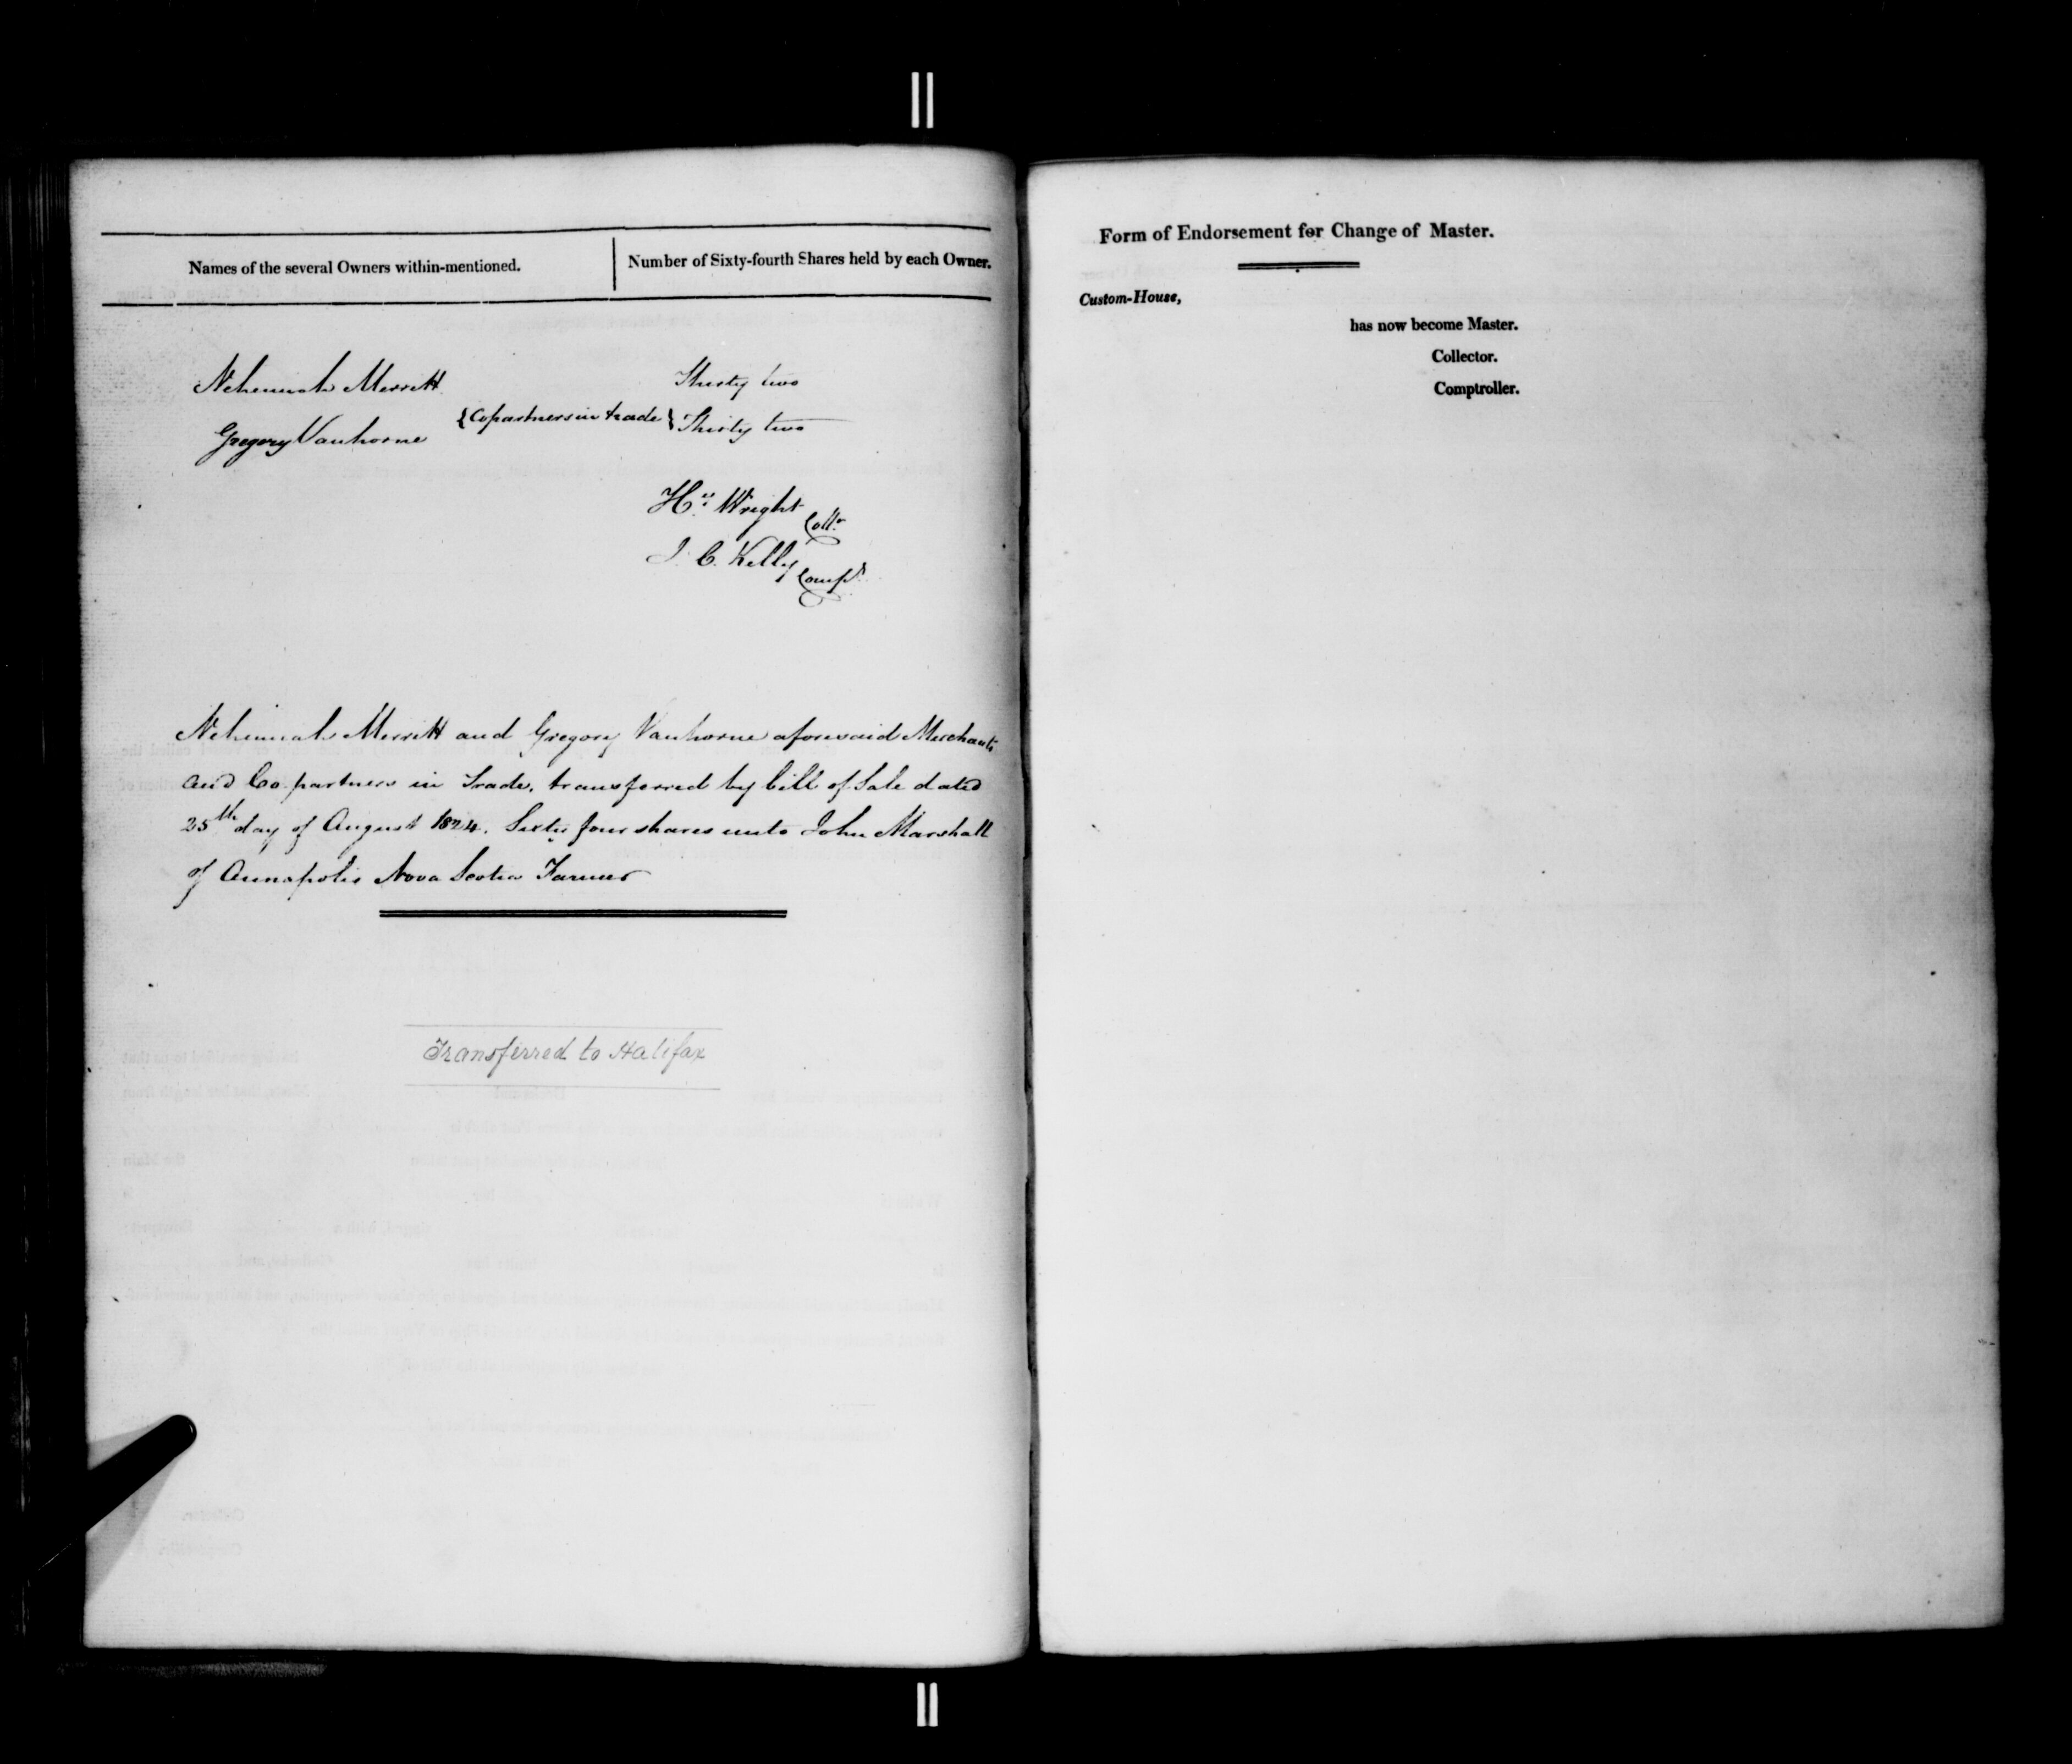 Names of the several Owners within-mentioned.
Number of Sixty-fourth Shares held by each Owner.
Nehemiah Merritt
Thirty two
{Copartners in trade}
Gregory Vanhorne
Thirty two
Hy. Wright Collr.
J. C. Kelly Compr.
Nehemiah Merritt and Gregory Vanhorne aforesaid Merchants
and Co partners in Trade, transferred by bill of Sale dated
25th day of August 1824. Sixty four shares unto John Marshall
of Annapolis Nova Scotia Farmer
Transferred to Halifax
Form of Endorsement for Change of Master.
Custom-House,
has now become Master.
Collector.
Comptroller.